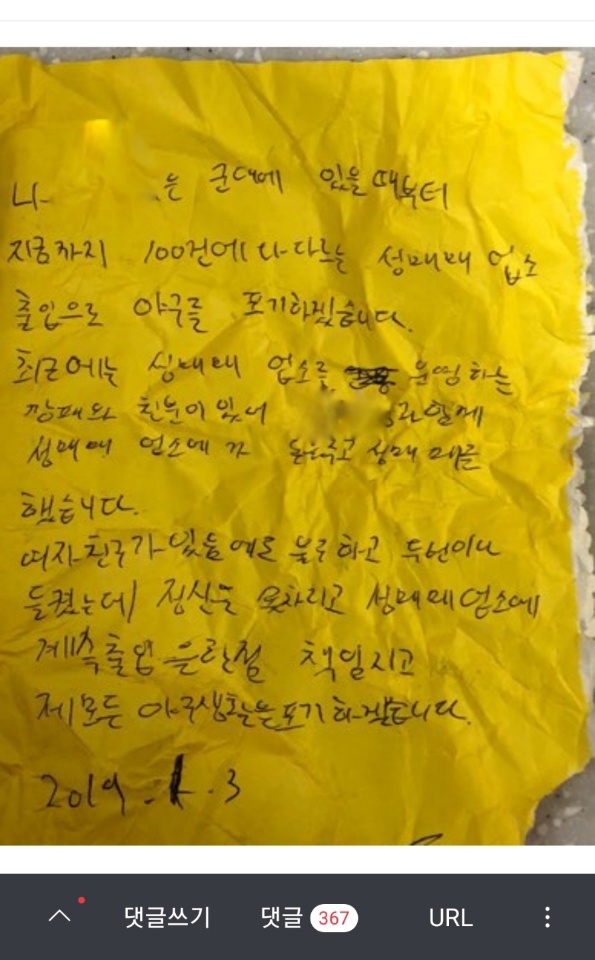 나 은 군대에 있을때부터
지금까지 100건에 다다르는 성매매 업소
출입으로 야구를 포기하겠습니다.
최근에는 성매매 업소를 운영하는
깡패와 친분이 있어 과함께
성매매 업소에 가 돈을주고 성매매를
했습니다.
여자친구가 있음에도 불구하고 두번이나
들켰는데 정신을 못차리고 성매매업소에
계속출입 을한점 책임지고
제모든 야구생활을포기하겠습니다.
2019.1.3
댓글쓰기 댓글 367 URL